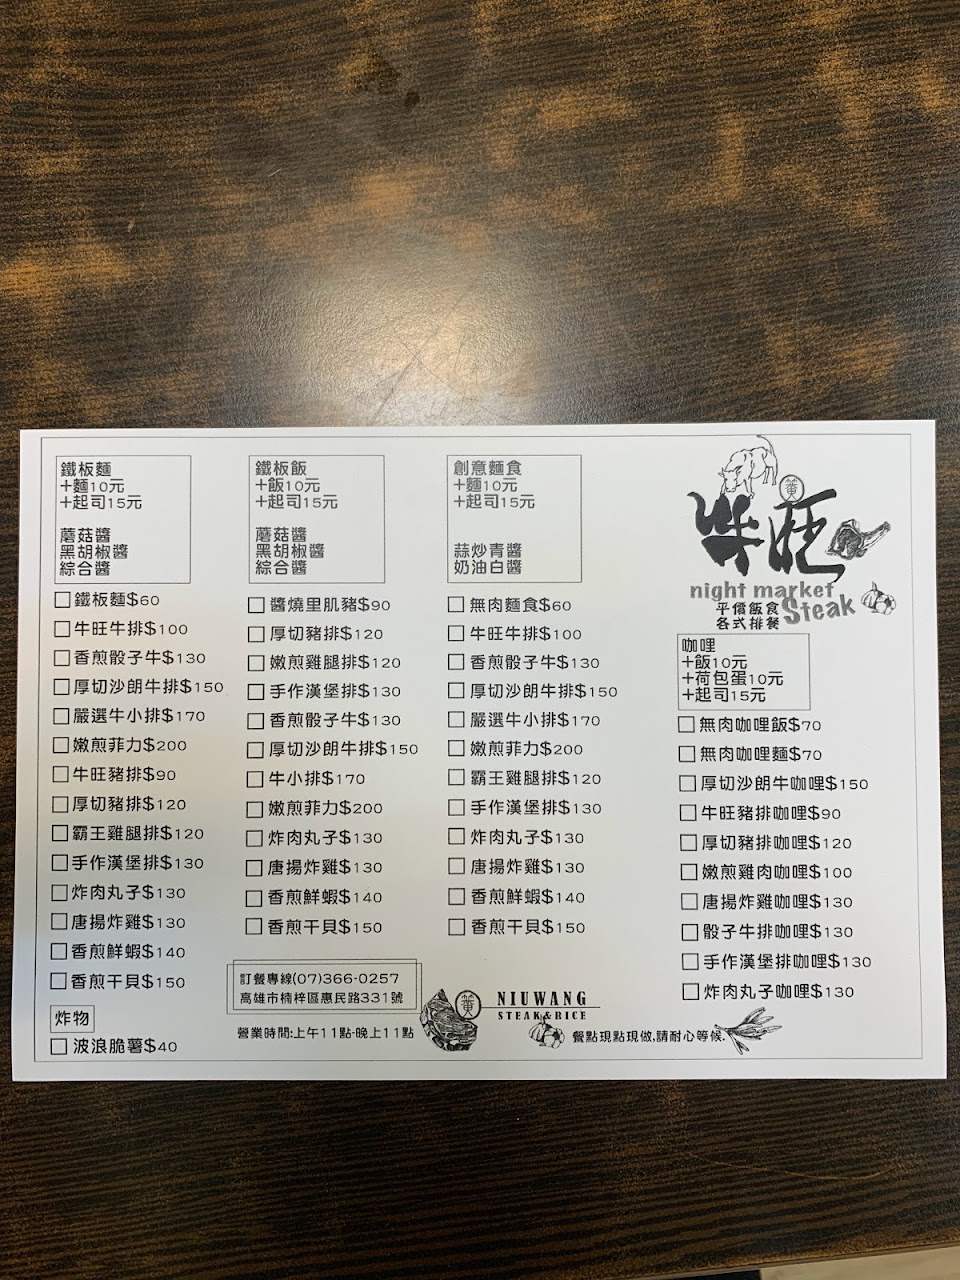 鐵板麵
+麵10元
+起司15元
蘑菇醬
黑胡椒醬
綜合醬
鐵板麵$60
牛旺牛排$100
香煎骰子牛$130
厚切沙朗牛排$150
嚴選牛小排$170
嫩煎菲力$200
牛旺豬排$90
厚切豬排$120
霸王雞腿排$120
手作漢堡排$130
炸肉丸子$130
唐揚炸雞$130
香煎鮮蝦$140
香煎干貝$150
炸物
波浪脆薯$40
鐵板飯
+飯10元
+起司15元
蘑菇醬
黑胡椒醬
綜合醬
醬燒里肌豬$90
厚切豬排$120
嫩煎雞腿排$120
手作漢堡排$130
香煎骰子牛$130
厚切沙朗牛排$150
牛小排$170
嫩煎菲力$200
炸肉丸子$130
唐揚炸雞$130
香煎鮮蝦$140
香煎干貝$150
訂餐專線(07)366-0257
高雄市楠梓區惠民路331號
營業時間:上午11點-晚上11點
創意麵食
+麵10元
+起司15元
蒜炒青醬
奶油白醬
無肉麵食$60
牛旺牛排$100
香煎骰子牛$130
厚切沙朗牛排$150
嚴選牛小排$170
嫩煎菲力$200
霸王雞腿排$120
手作漢堡排$130
炸肉丸子$130
唐揚炸雞$130
香煎鮮蝦$140
香煎干貝$150
黃
NIUWANG
STEAK&RICE
餐點現點現做,請耐心等候.
黃
牛旺
night market
平價飯食
各式排餐
Steak
咖哩
+飯10元
+荷包蛋10元
+起司15元
無肉咖哩飯$70
無肉咖哩麵$70
厚切沙朗牛咖哩$150
牛旺豬排咖哩$90
厚切豬排咖哩$120
嫩煎雞肉咖哩$100
唐揚炸雞咖哩$130
骰子牛排咖哩$130
手作漢堡排咖哩$130
炸肉丸子咖哩$130